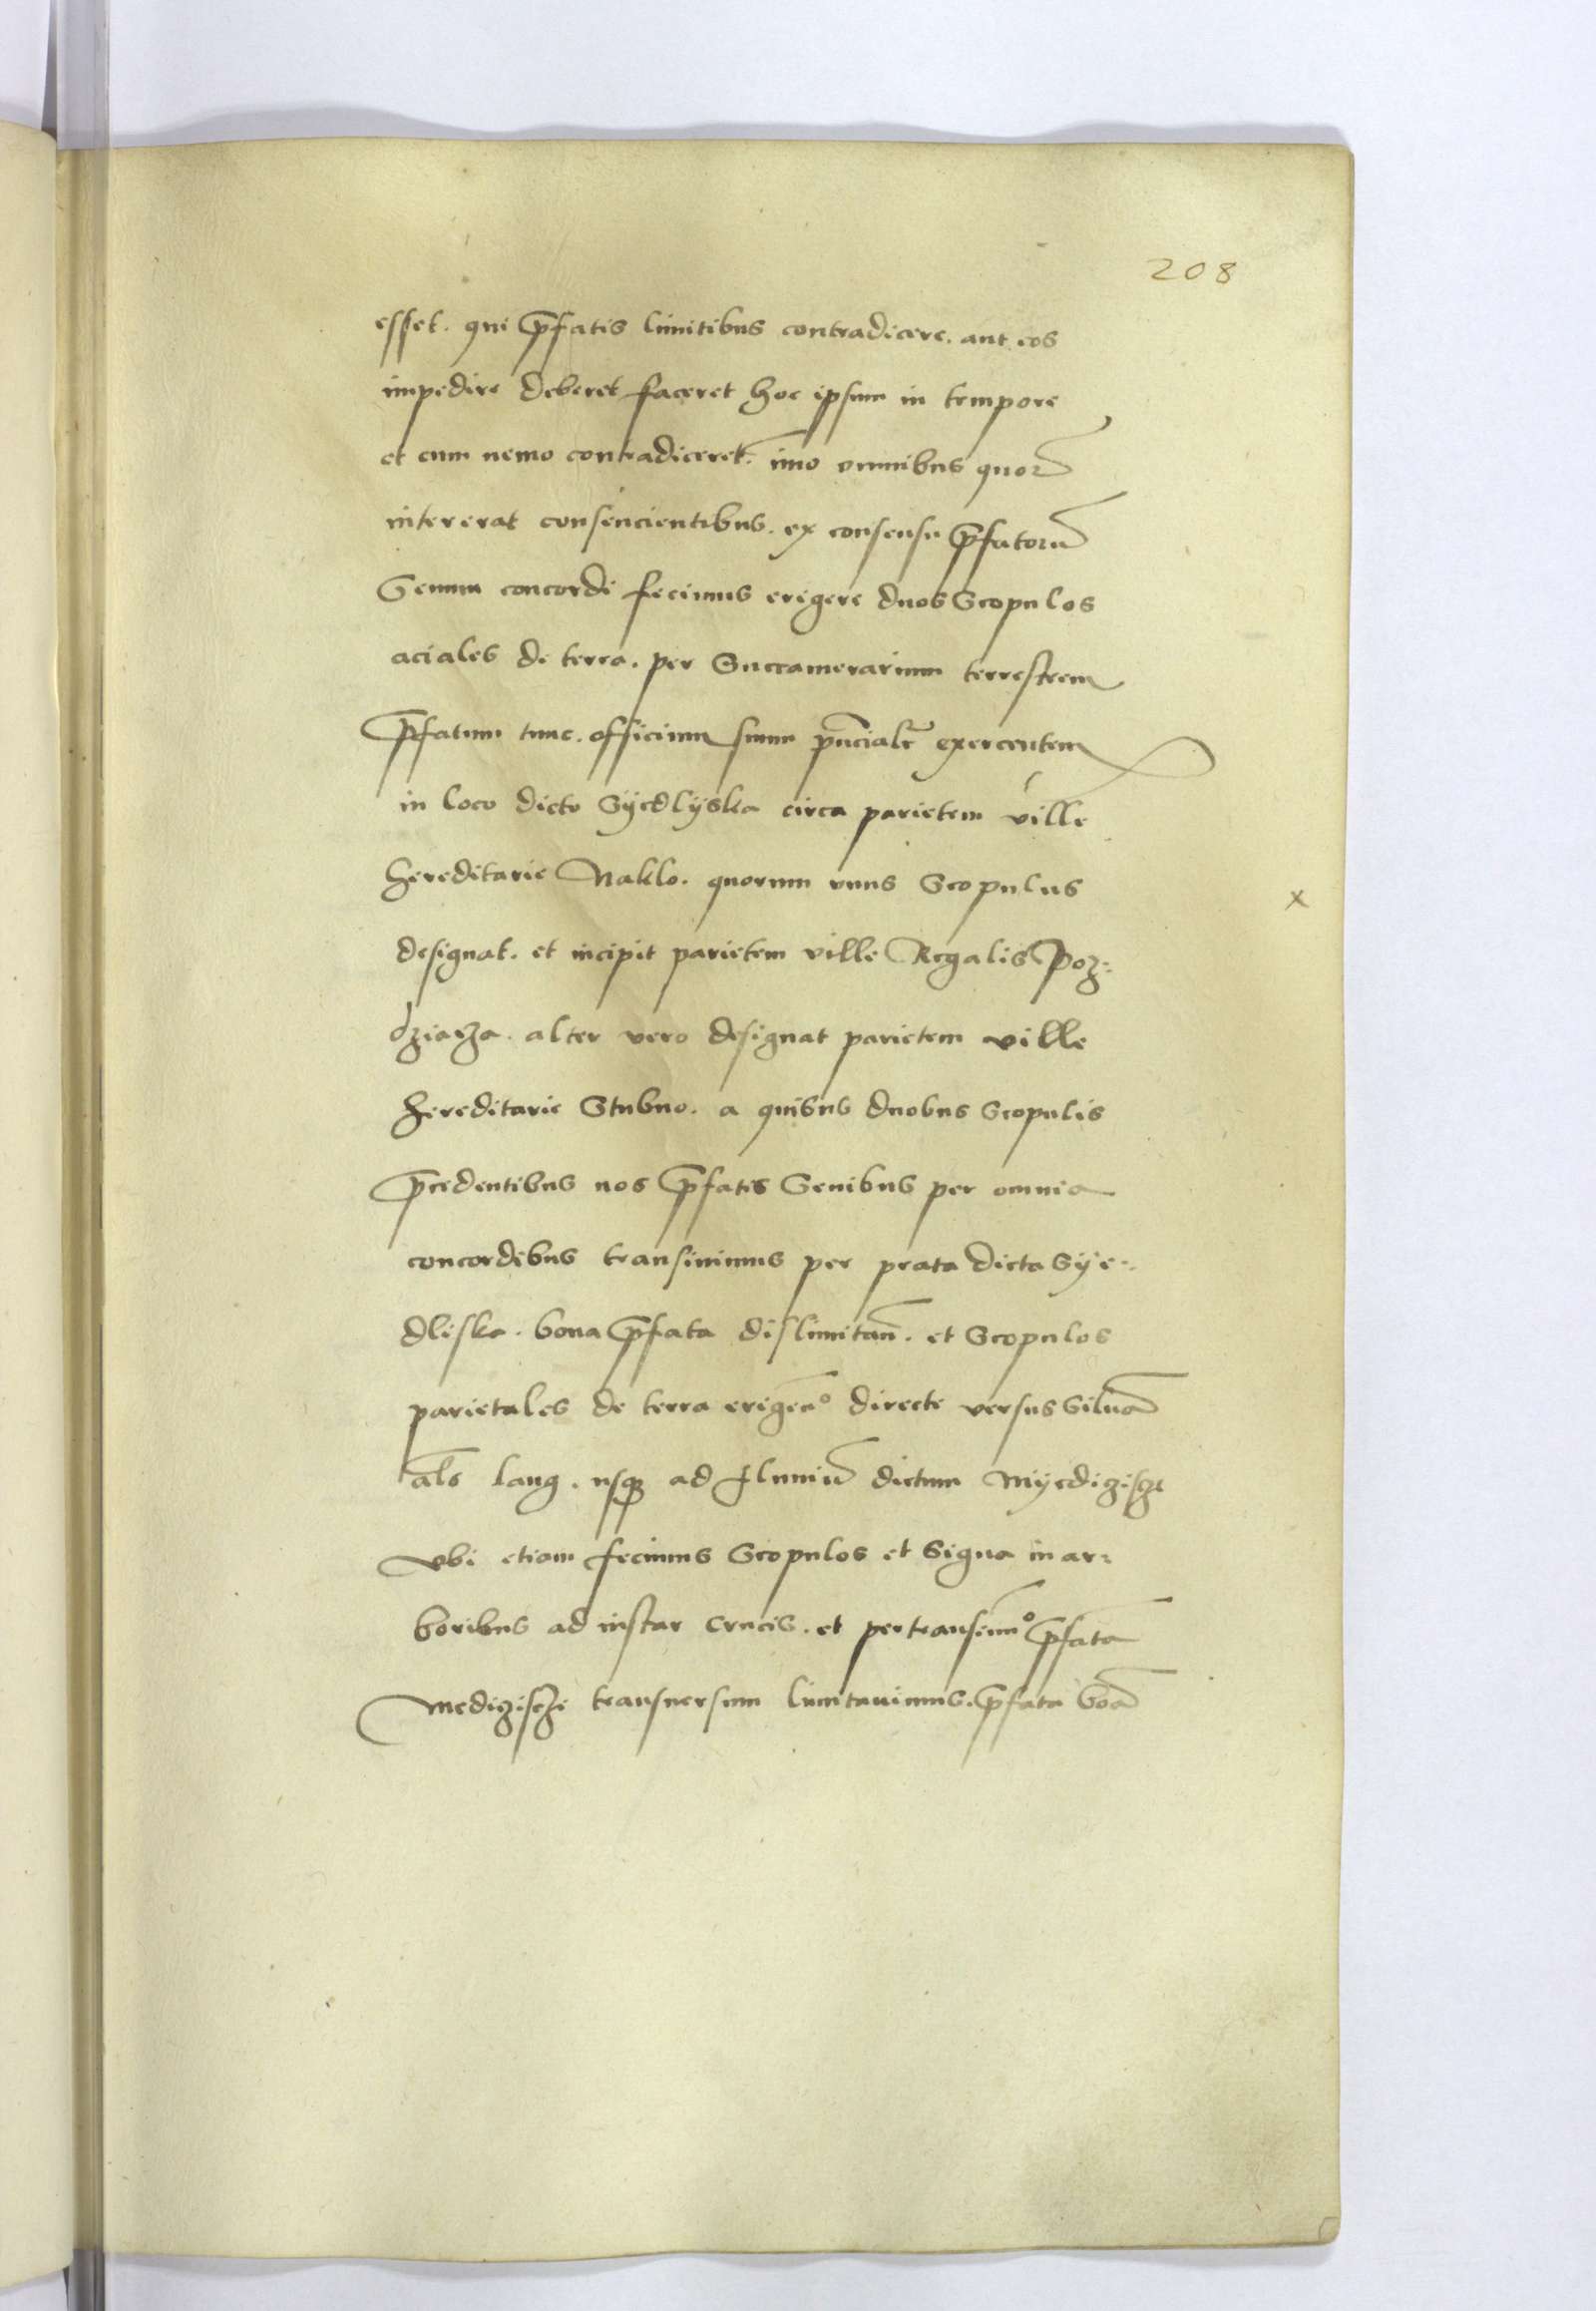 208
esset. qui p̄fatis limitibus contradicere. aut eos
impedire deberet faceret hoc ipsum in tempore
et cum nemo contradiceret. imō omnibus quor̄
intererat consencientibus. ex consensu p̄fatorū
Senum concordi fecimus erigere duos Scopulos
aciales de terra. per Succamerarium terrestrem
p̄fatum tunc. officium suum p̄ncialr̄ exercentem
in loco dicto Sÿedlÿska circa parietem ville
hereditarie Naklo. quorum unus Scopulus
x
designat. et incipit parietem ville Regalis Poz:
dziacza. alter vero designat parietem ville
hereditarie Stubno. a quibus duobus Scopulis
p̄cedentibus nos p̄fatis Senibus per omnia
concordibus transivimus per prata dicta Sÿe:
dliska. bona p̄fata dislimitan̄. et Scopulos
parietales de terra erigen̄o directe versus Siluā
al̄s lang. usq ad fluuiū dictum Mÿedizisze
vbi etiam fecimus Scopulos et Signa in ar:
boribus ad instar Crucis. et pertranseun̄o p̄fata
Medziszcze transuersum limitauimus. p̄fata boā